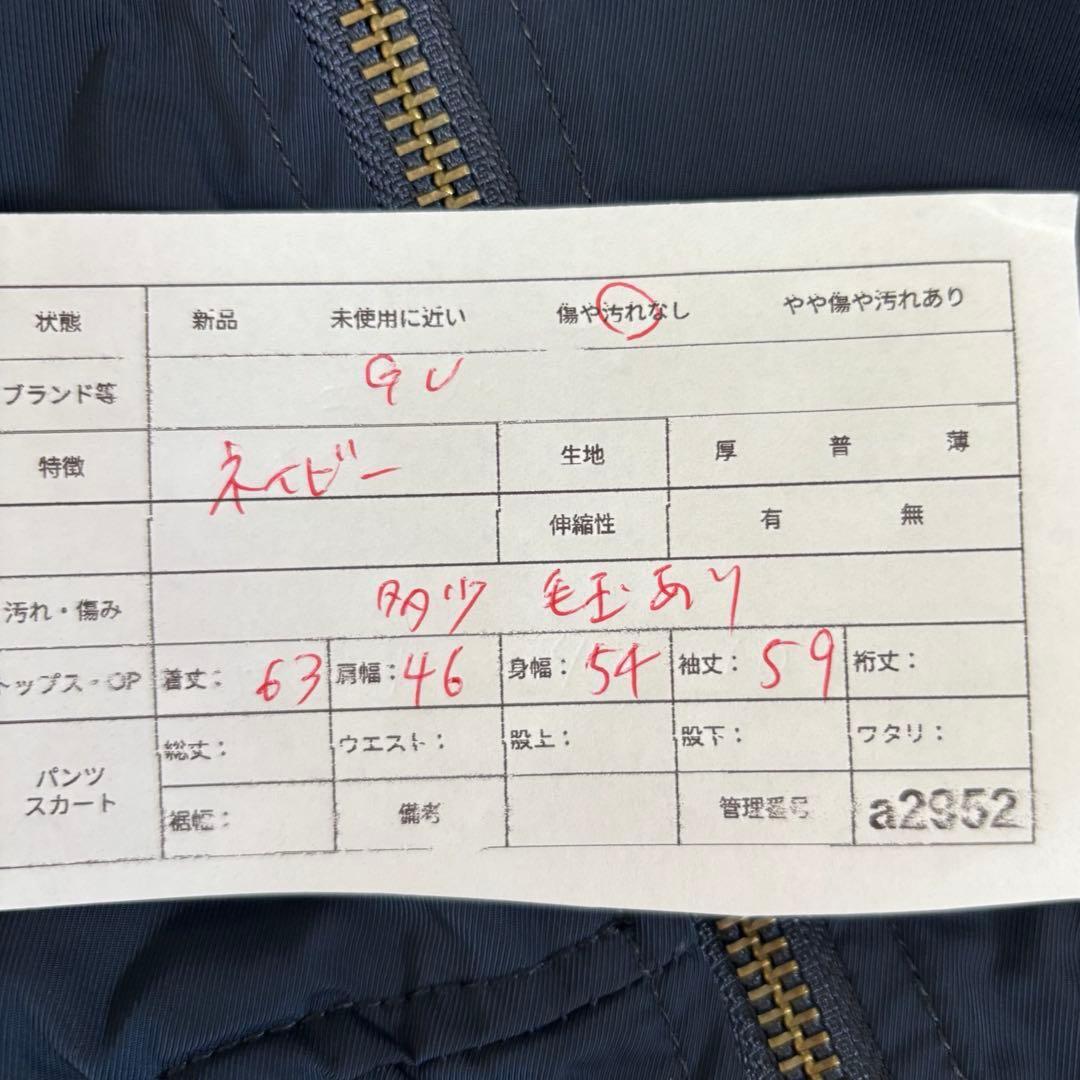 状態 新品 未使用に近い 傷や汚れなし やや傷や汚れあり
ブランド等 GU
特徴 ネイビー 生地 厚 普 薄
伸縮性 有 無
汚れ・傷み 毛玉あり
トップス・OP 着丈: 63 肩幅: 46 身幅: 54 袖丈: 59 裄丈:
パンツ スカート 総丈: ウエスト: 股上: 股下: ワタリ:
裾幅: 備考 管理番号 a2952